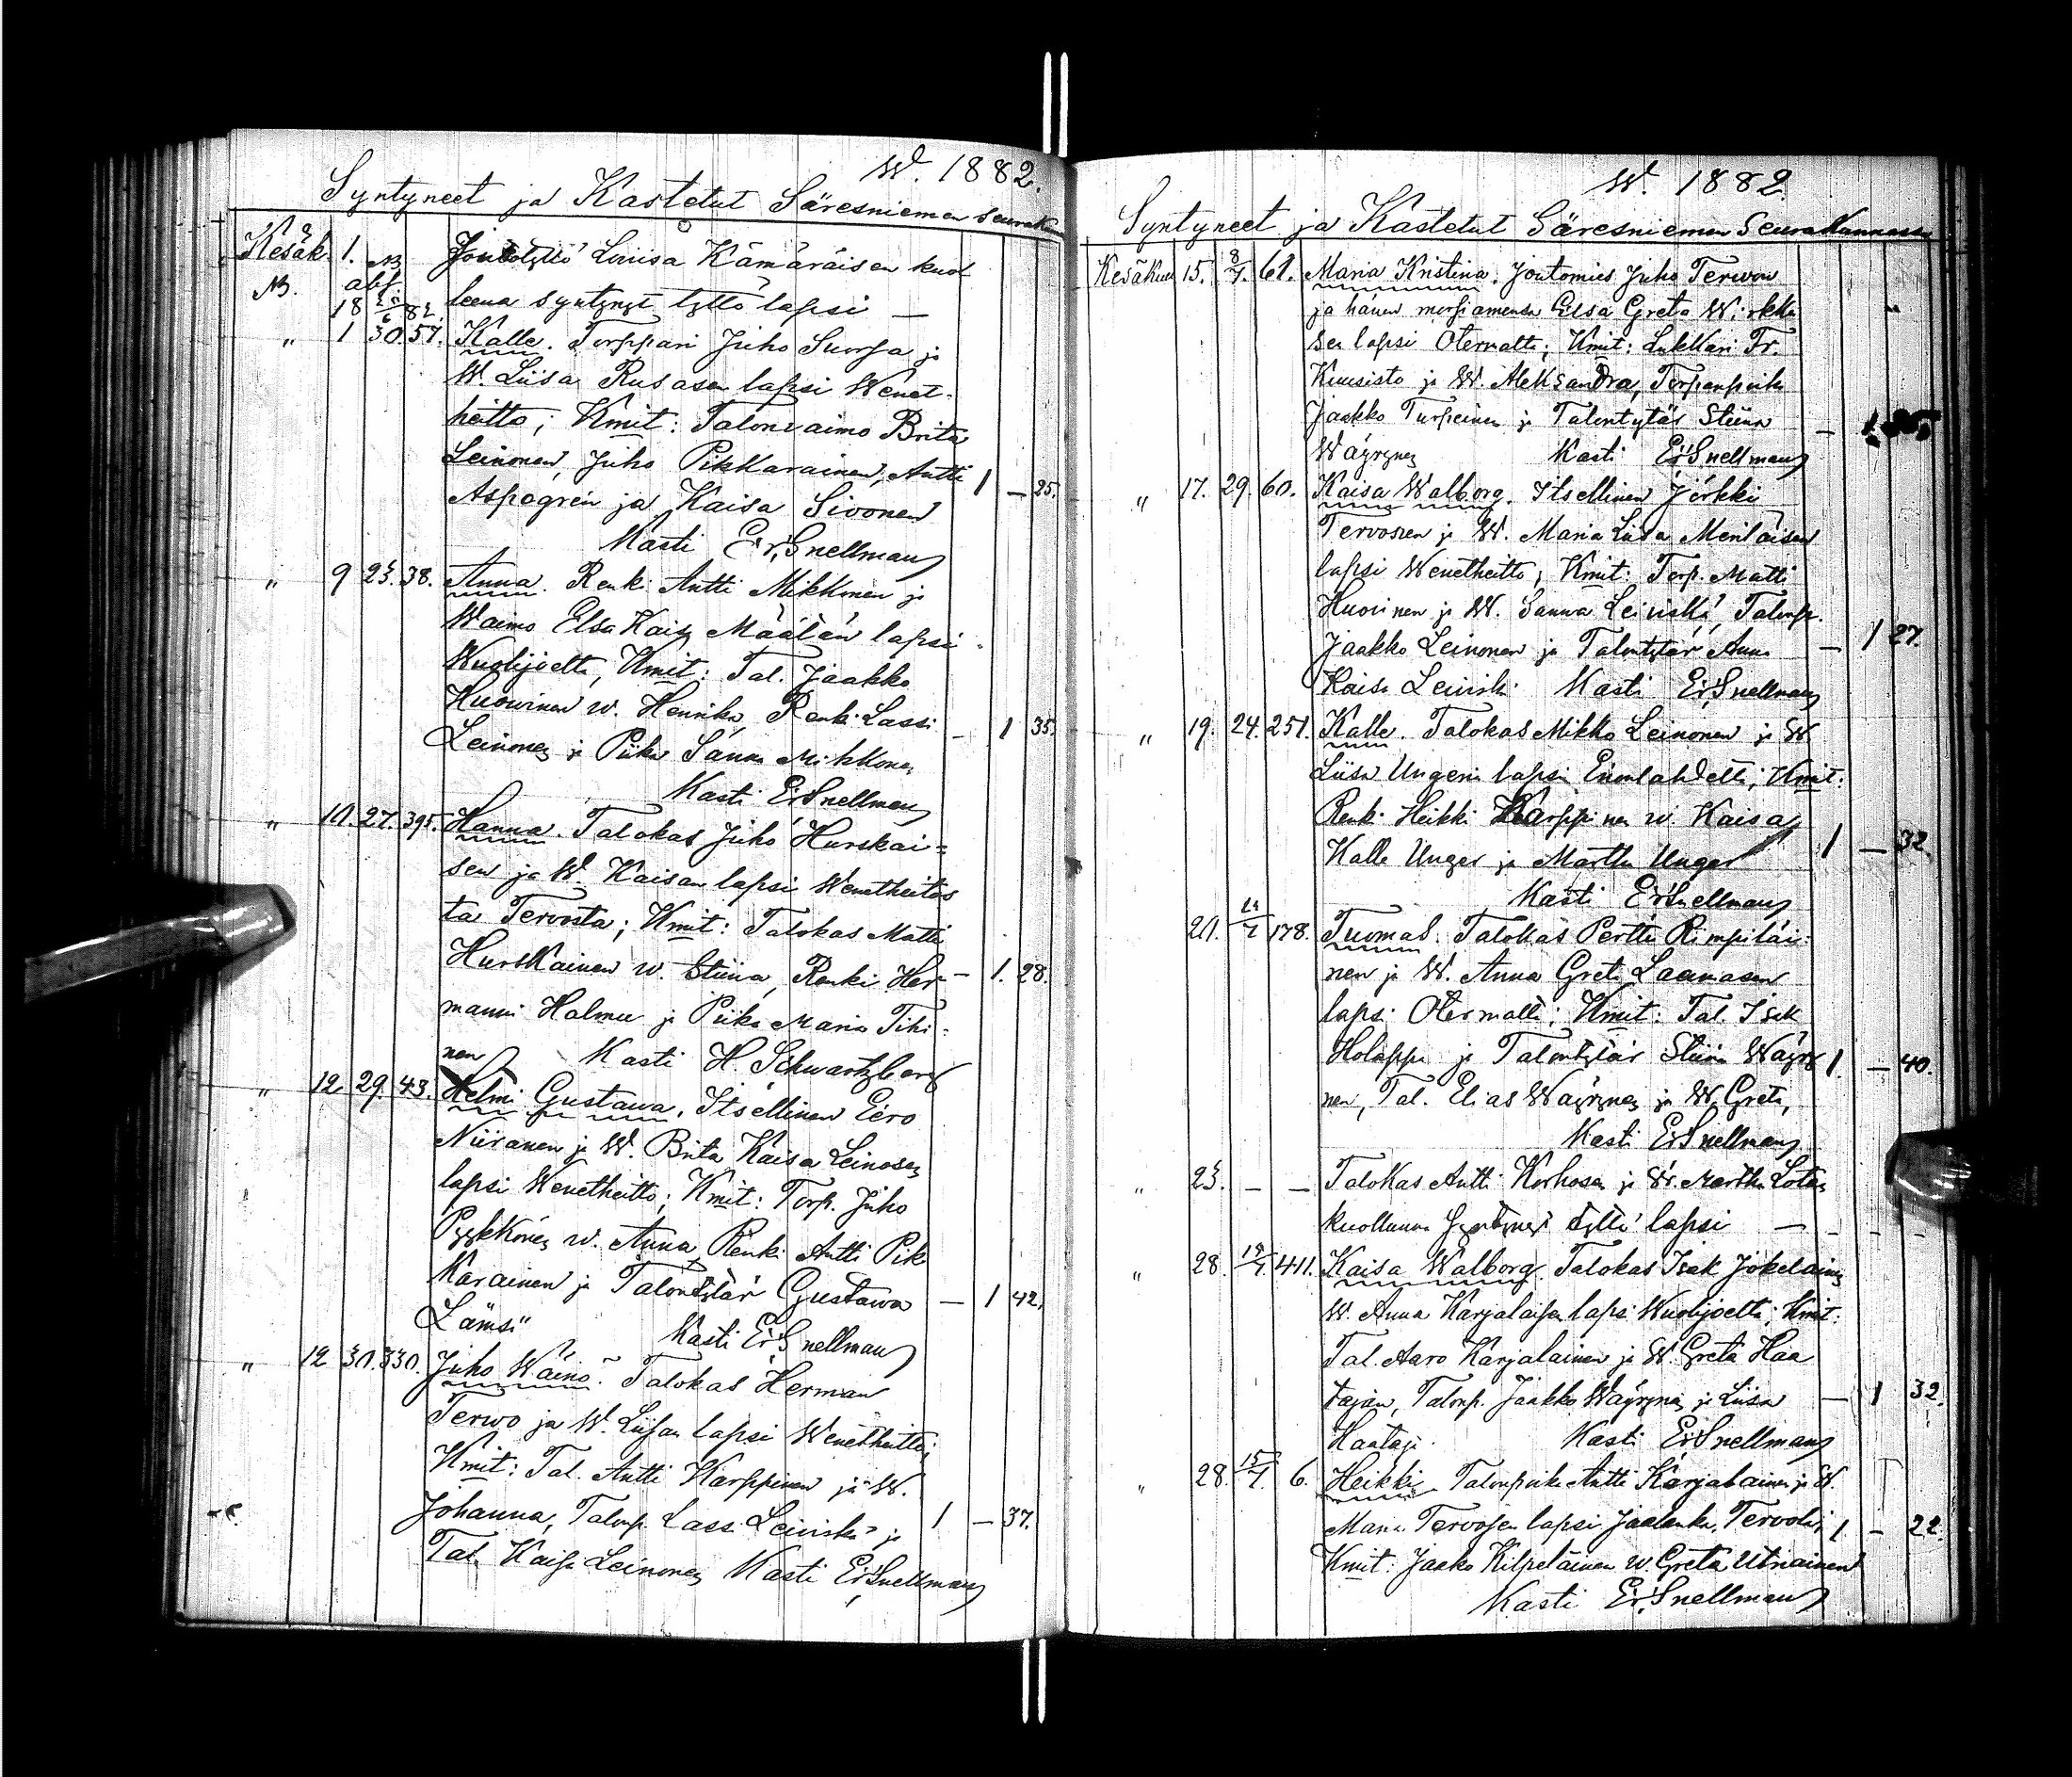 W. 1882.
Syntyneet ja Kastetut Säresniemen seurakun
Kesäk. 1. Joutotyttö Liisa Kämäräisen kuol
leena syntynyt tyttö lapsi —
" 1 30 57. Kalle. Torppari Juho Suorsa ja
W. Liisa Rusasen lapsi Wenet-
heitto; Kmit: Talonvaimo Brita
Leinonen, Juho Pikkarainen, Antti
Aspegrén ja Kaisa Sivonen 1 — 25.
Kasti Er. Snellman
" 9 25. 38. Anna. Renki Antti Mikkonen ja
Waimo Elsa Kaisa Määtän lapsi
Wuolijoelta, Kmit: Tal. Jaakko
Huovinen w. Henrika, Renki Lassi
Leinonen ja Piika Sanna Mikkonen — 1 35.
Kasti Er Snellman
" 11. 27. 395. Hanna. Talokas Juho Hurskai=
sen ja W. Kaisan lapsi Wenetheitos
ta Tervosta; Kmit: Talokas Matti
Hurskainen w. Stiina, Renki Her- — 1. 28.
manni Halmu ja Piika Maria Tihi-
nen Kasti H. Schwartzberg
" 12 29. 43. Helmi Gustawa. Itsellinen Eero
Niiranen ja W. Brita Kaisa Leinosen
lapsi Wenetheitto; Kmit: Torp. Juho
Pyykkönen w. Anna, Renki Antti Pik
karainen ja Talontytär Gustawa — 1 42.
Lämsä Kasti Er. Snellman
" 12 31. 330. Juho Wäinö. Talokas Herman
Terwo ja W. Liisan lapsi Wenetheitto;
Kmit: Tal. Antti Karppinen ja W.
Johanna, Talonp. Lassi Leiviskä ja 1 — 37.
Tal. Kaisa Leinonen Kasti Er. Snellman
W. 1882.
Syntyneet ja Kastetut Säresniemen Seurakunnassa
Kesäkuu 15. 8/7. 61. Maria Kristina. Joutomies Juho Terwon
ja hänen morsiamensa Elsa Greta Wirkku
sen lapsi Otermalta; Kmit: Lukkari Fr.
Kuusisto ja W. Aleksandra, Torpanpoika
Jaakko Turpeinen ja Talontytär Stiina
Wäyrynen Kasti Er Snellman
" 17. 29. 60. Kaisa Walborg. Itsellinen Jörkki
Tervosen ja W. Maria Liisa Meriläisen
lapsi Wenetheitto; Kmit: Torp. Matti
Huovinen ja W. Sanna Leiviskä, Talonp.
Jaakko Leinonen ja Talontytär Anna — 1 27.
Kaisa Leiviskä Kasti Er Snellman
" 19. 24. 251. Kalle. Talokas Mikko Leinonen ja W
Liisa Ungerin lapsi Enonlahdelta; Kmit:
Renki Heikki Karppinen w. Kaisa
Kalle Unger ja Martha Unger 1 — 32.
Kasti Er Snellman
21. 178. Tuomas. Talokas Pertti Rimpiläi-
nen ja W. Anna Greta Laamasen
lapsi Otermalta; Kmit: Tal. Isak
Holappa ja Talontytär Stiina Wäyry 1 — 40.
nen, Tal. Elias Wäyrynen ja W. Greta,
Kasti Er Snellman
" 25. — — Talokas Antti Korhosen ja W. Martha Lotan
kuolluna syntynyt tyttö lapsi — — — —
" 28. 411. Kaisa Walborg. Talokas Isak Jokelainen
W. Anna Karjalaisen lapsi Wuolijoelta; Kmit:
Tal. Aaro Karjalainen ja W. Greta Haa
tajan, Talonp. Jaakko Wäyrynen ja Liisa — 1 32.
Haataja Kasti Er Snellman
" 28. 15/7. 6. Heikki. Talonpoika Antti Karjalainen ja W.
Maria Tervosen lapsi Jaalanka, Tervola; 1 — 22.
Kmit: Jaako Kilpeläinen w. Greta Utriainen
Kasti Er. Snellman